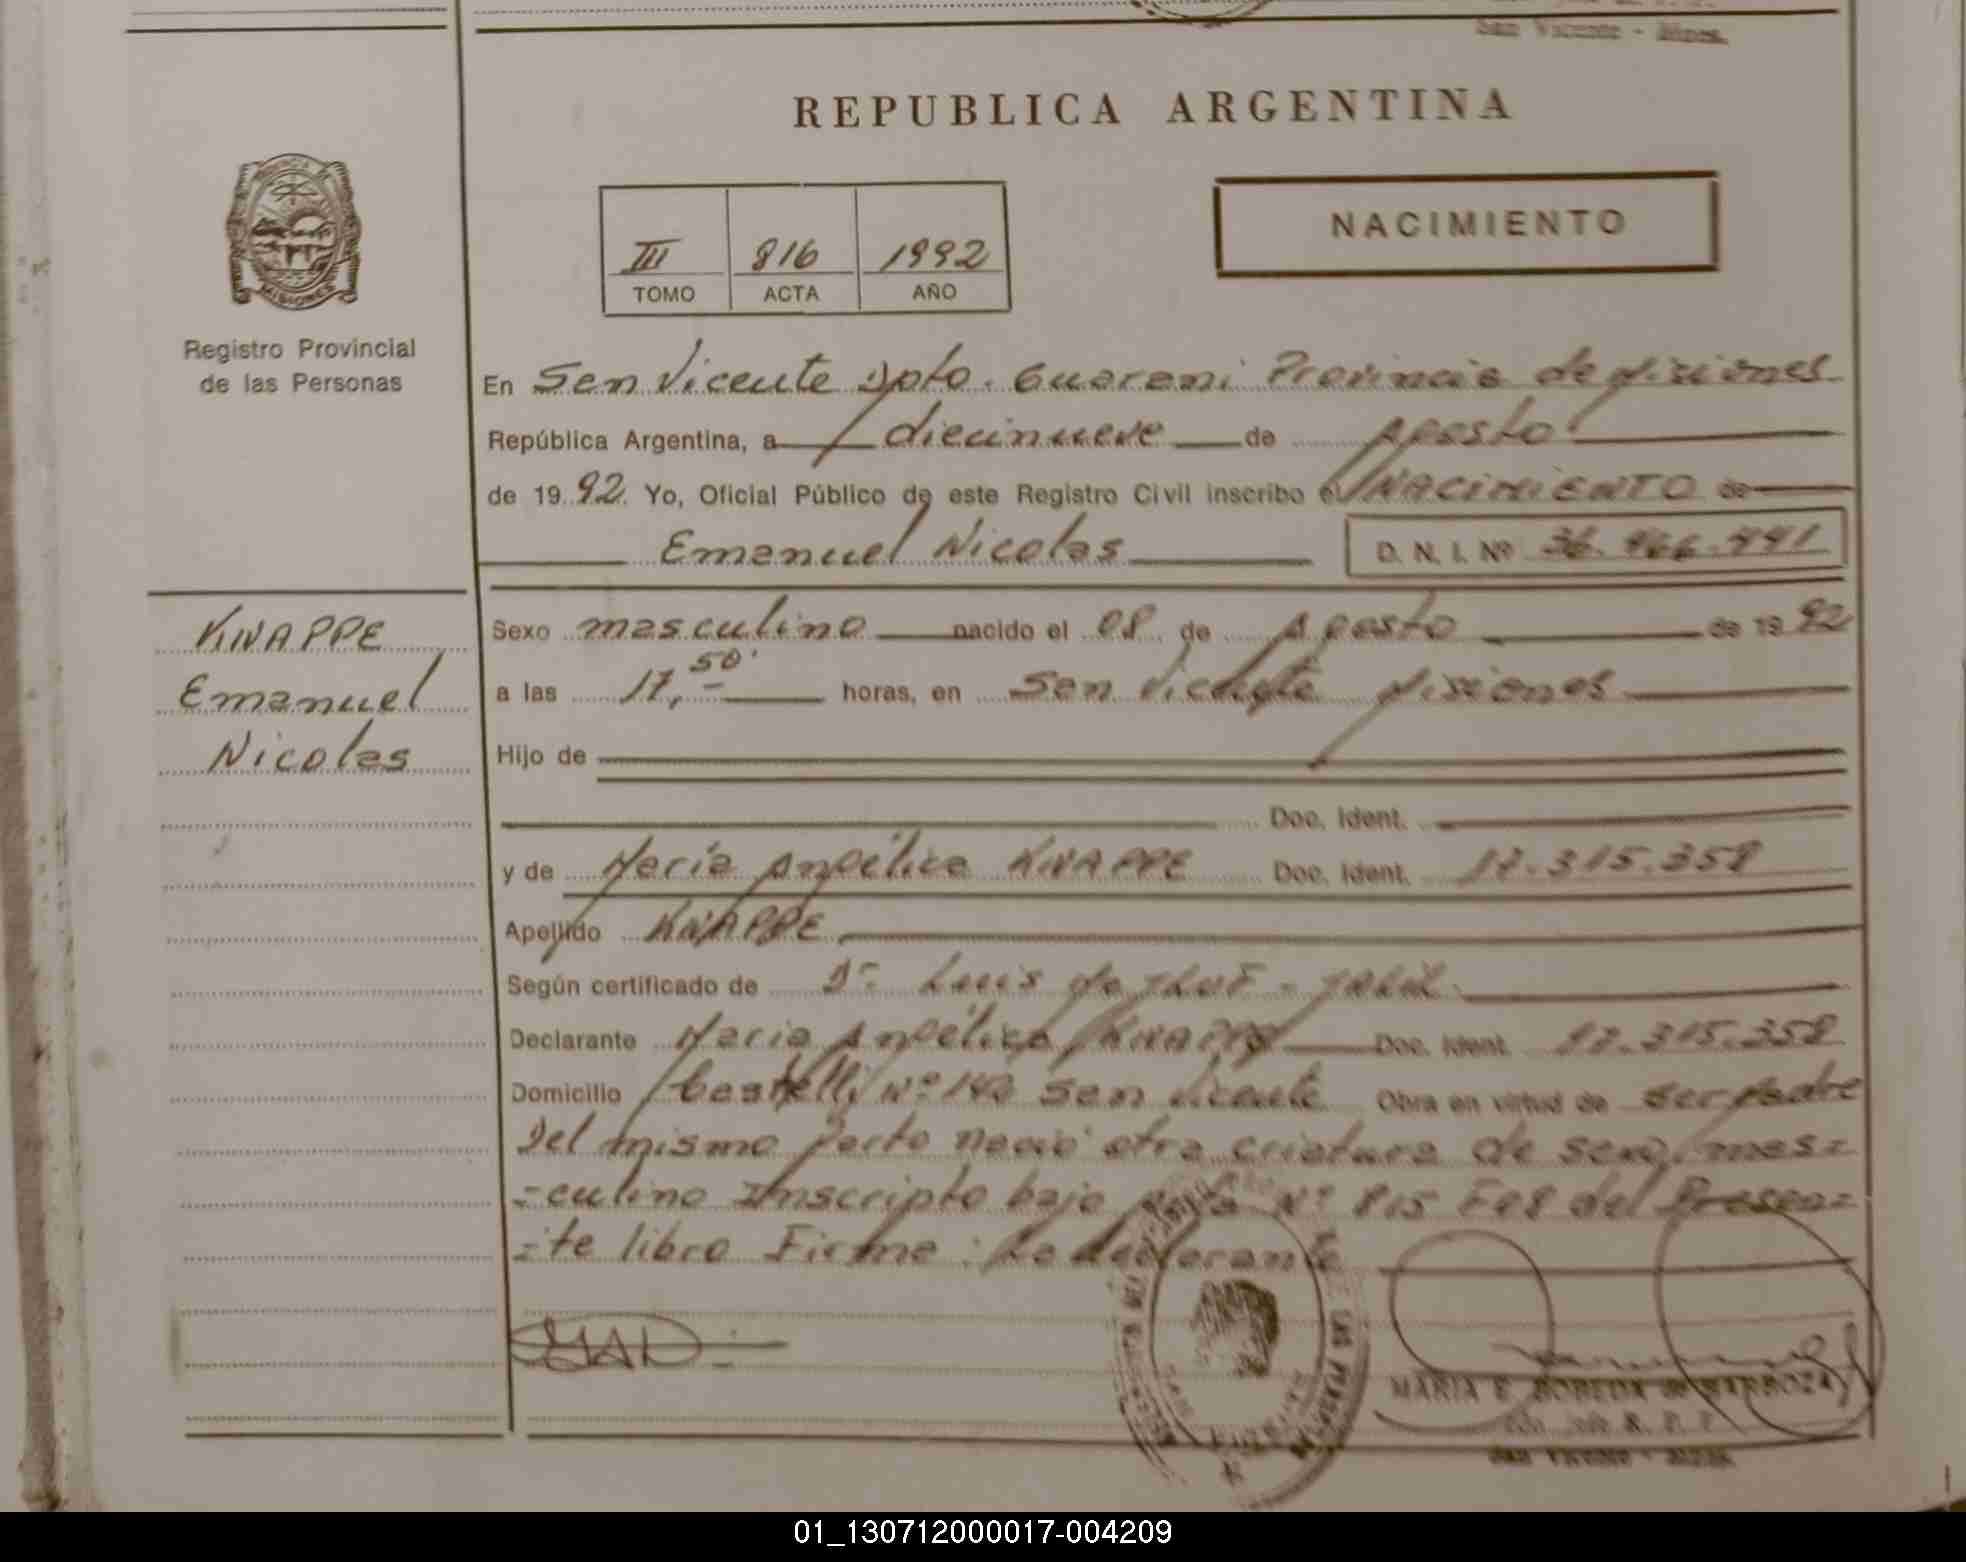 San Vicente - Mnes.
REPUBLICA ARGENTINA
NACIMIENTO
III 816 1992
TOMO ACTA AÑO
MISIONES
Registro Provincial
de las Personas
En San Vicente Dpto. Guarani Provincia de Misiones
República Argentina, a diecinueve de Agosto
de 19 92. Yo, Oficial Público de este Registro Civil inscribo el NACIMIENTO de
Emanuel Nicolas D. N. I. Nº 36.
KNAPPE
Emanuel
Nicolas
Sexo masculino nacido el 08 de Agosto de 19 92
a las 17,50 horas, en San Vicente Misiones
Hijo de
Doc. Ident.
y de Maria Angélica KNAPPE Doc. Ident. 17.315.358
Apellido KNAPPE
Según certificado de Dr. Luis
Declarante Maria Angélica KNAPPE Doc. Ident. 17.315.358
Domicilio Castelli Nº 140 San Vicente Obra en virtud de ser
Del mismo Parto nació otra criatura de sexo mas=
=culino Inscripto bajo Acta Nº 815 F08 del Presen=
=te libro Firma: La declarante
MARIA E. DE BARBOZA
San Vicente - Mnes.
01_130712000017-004209